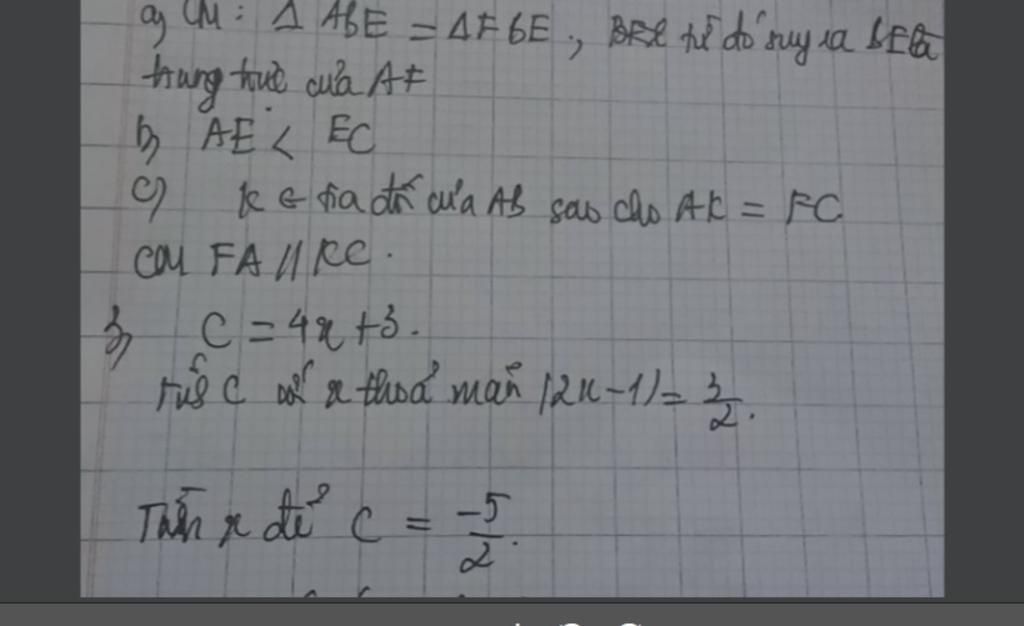 a, CM: Δ ABE = ΔFBE, từ đó suy ra BE là
trung trực của AF
b, AE < EC
c) K ∈ tia đối của AB sao cho AK = FC
CM FA // KC.
3, C = 4x + 3.
C với x thoả mãn |2x-1| = 3/2.
x để C = -5/2.